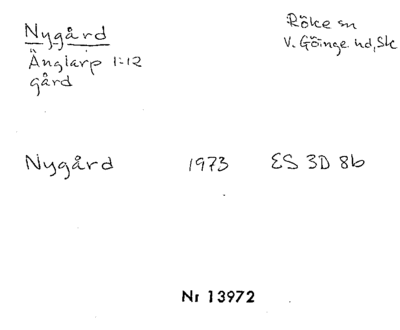 Nygård
Änglarp 1:12
gård
Röke sn
V. Göinge hd, Sk
Nygård 1973 ES 3D 8b
Nr 13972